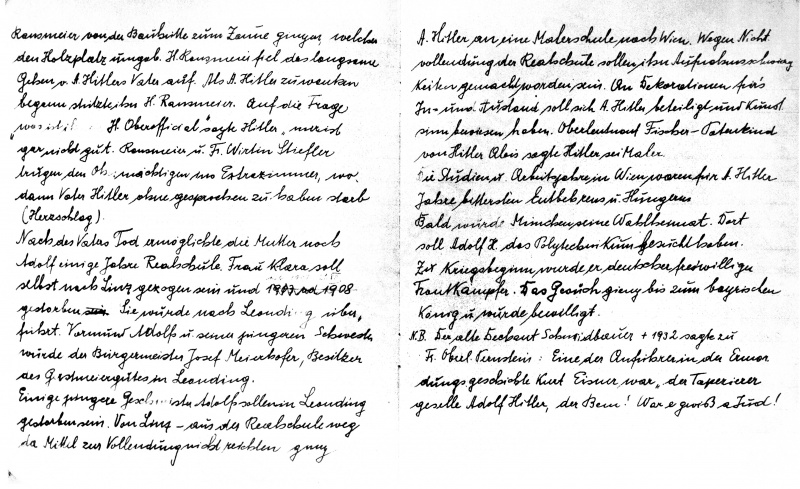 Ransmeier von der Bauhütte zum Zaune gingen, welcher
den Holzplatz umgab. H. Ransmeier fiel das langsame
Gehen v. A. Hitlers Vater auf. Als A. Hitler zu wanken
begann stützte ihn H. Ransmeier. Auf die Frage
was ist H. Oberofficial" sagte Hitler, mir ist
gar nicht gut. Ransmeier u. Fr. Wirtin Stiefler
trugen den Oh mächtigen ins Extrazimmer, wo
dann Vater Hitler ohne gesprochen zu haben starb
(Herzschlag).
Nach des Vaters Tod ermöglichte die Mutter noch
Adolf einige Jahre Realschule. Frau Klara soll
selbst nach Linz gezogen sein und 1908
gestorben sein. Sie wurde nach Leonding über,
führt. Vormund Adolfs u. seiner jüngeren Schwester
wurde der Bürgermeister Josef Meierhofer, Besitzer
des G stmeiergutes in Leonding.
Einige jüngere Gesch ister Adolfs sollen in Leonding
gestorben sein. Von Linz – aus der Realschule weg
da Mittel zur Vollendung nicht reichten ging
A. Hitler an eine Malerschule nach Wien. Wegen Nicht
vollendung der Realschule sollen ihm Aufnahmsschwierig
keiten gemacht worden sein. An Dekorationen für's
In- und Ausland soll sich A. Hitler beteiligt und Kunst
sinn bewiesen haben. Oberleutnant Fischer – Patenkind
von Hitler Alois sagte Hitler sei Maler.
Die Studien u. Arbeitsjahre in Wien waren für A. Hitler
Jahre bittersten Entbehrens u. Hungerns
Bald wurde München seine Wahlheimat. Dort
soll Adolf H. das Polytechnikum besucht haben.
Zu Kriegsbeginn wurde er deutscher freiwilliger
Frontkämpfer. Das Gesuch ging bis zum bayrischen
König u. wurde bewilligt.
N.B. Der alte Dechant Schmidbauer + 1932 sagte zu
Fr. Oberl. Pernstein: Eine der Anführer in der Ermor
dungsgeschichte Kurt Eisner war „der Tapezierer
geselle Adolf Hitler, der Bem! War e gwiß a Jud!